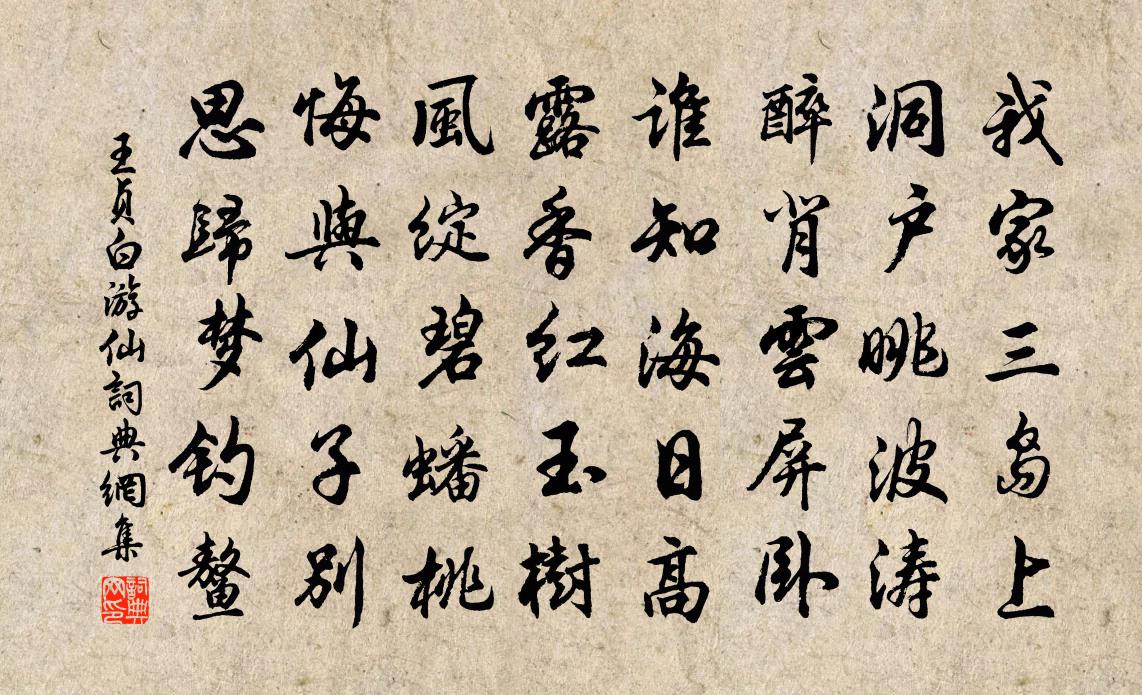 我家三岛上
洞户眺波涛
醉背雲屏卧
谁知海日高
露香红玉樹
風綻碧蟠桃
悔與仙子别
思歸梦钓鳌
王贞白游仙詞典網集
詞典网印